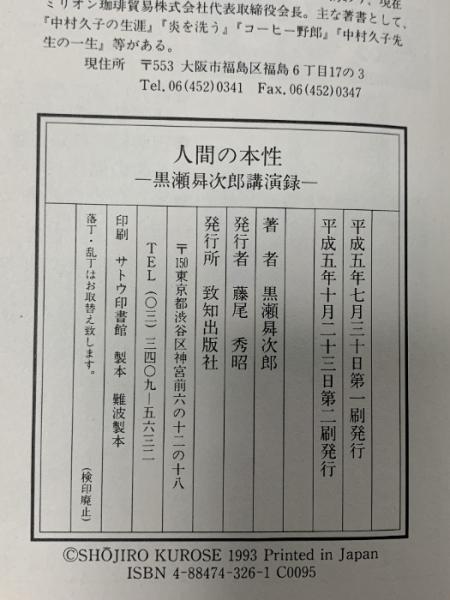 ミリオン珈琲貿易株式会社代表取締役会長。主な著書として、
『中村久子の生涯』『炎を洗う』『コーヒー野郎』『中村久子先
生の一生』等がある。
現住所 〒553 大阪市福島区福島6丁目17の3
Tel. 06(452)0341 Fax. 06(452)0347
人間の本性
―黒瀬曻次郎講演録―
平成五年七月三十日第一刷発行
平成五年十月二十三日第二刷発行
著者 黒瀬曻次郎
発行者 藤尾秀昭
発行所 致知出版社
〒150東京都渋谷区神宮前六の十二の十八
TEL(〇三)三四〇九―五六三二
印刷 サトウ印書館 製本 難波製本
落丁・乱丁はお取替え致します。 (検印廃止)
©SHŌJIRO KUROSE 1993 Printed in Japan
ISBN 4-88474-326-1 C0095